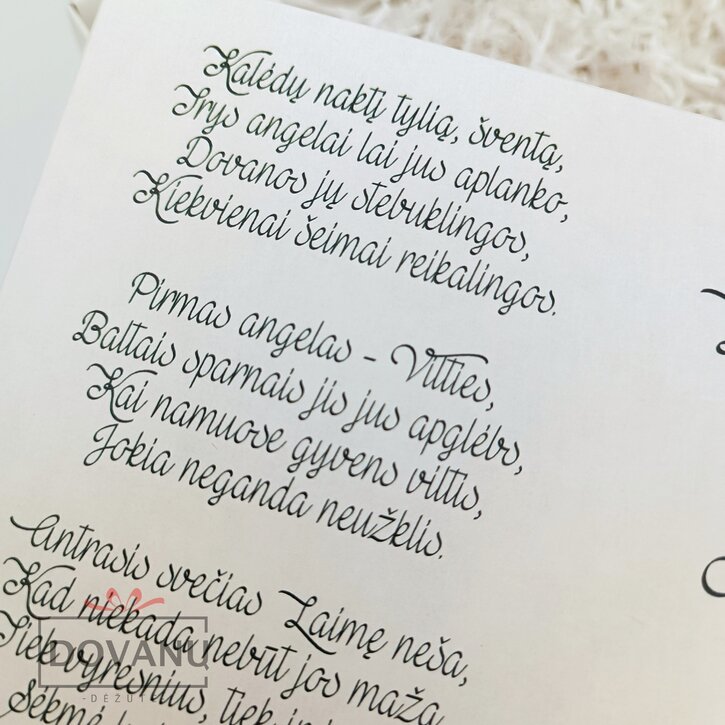 Kalėdų naktį tylią, šventą,
Trys angelai lai jus aplanko,
Dovanos jų stebuklingos,
Kiekvienai šeimai reikalingos.
Pirmas angelas - Vilties,
Baltais sparnais jis jus apglėbs,
Kai namuose gyvens viltis,
Jokia neganda neužklis.
Antrasis svečias Laimę neša,
Kad niekada nebūt jos maža
Tiek vyresnius, tiek
Sėkmė
DOVANŲ
-DĖŽUT